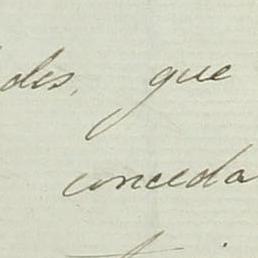 des, que
conceda